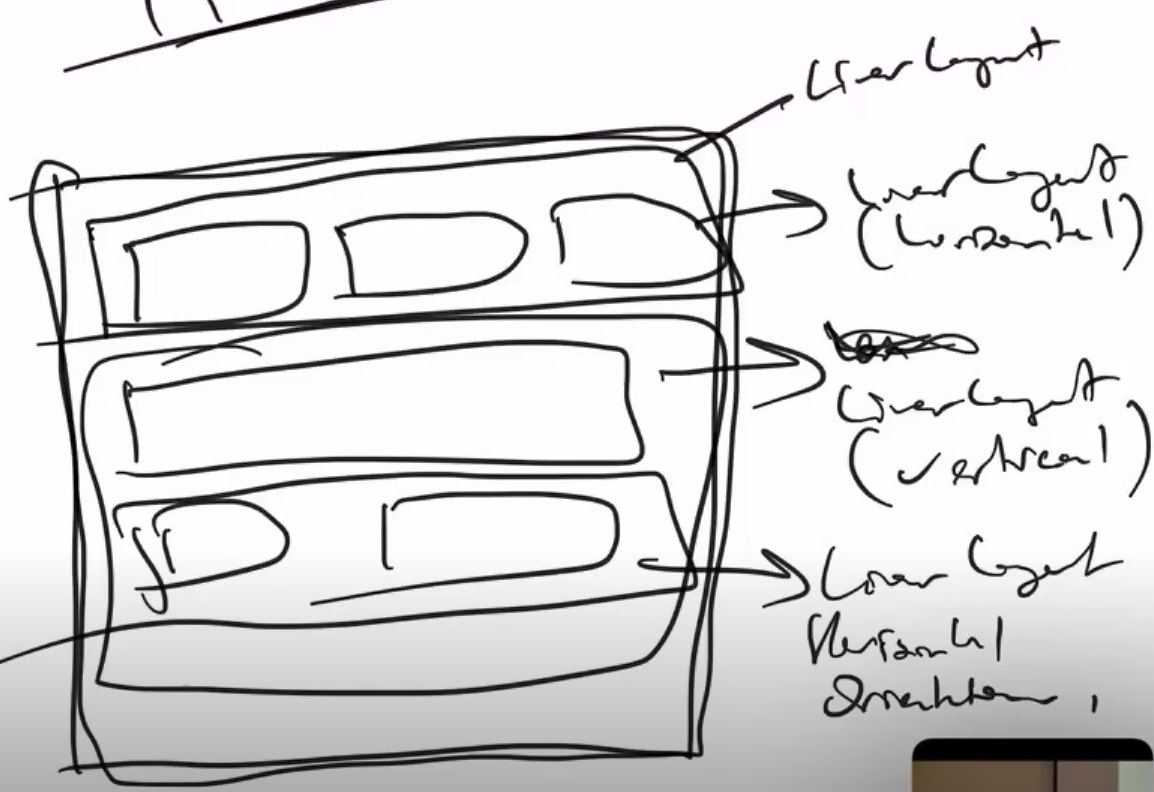 Linear Layout
Linear Layout
(horizontal)
Linear Layout
(vertical)
Linear Layout
Horizontal
Orientation